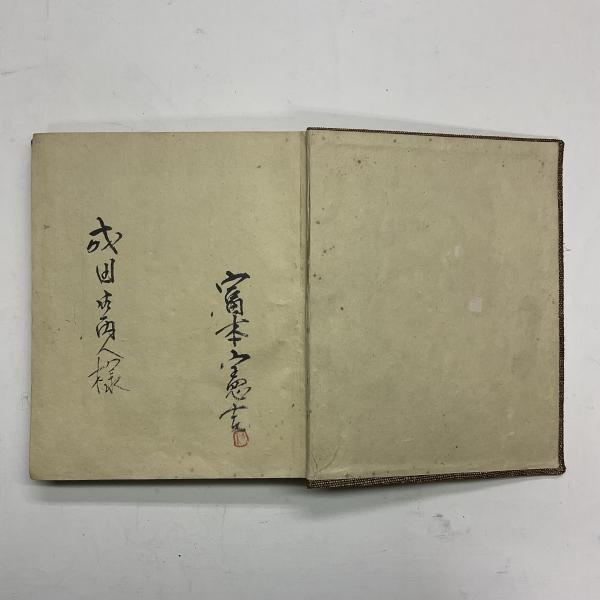 富本憲吉
成田御両人様